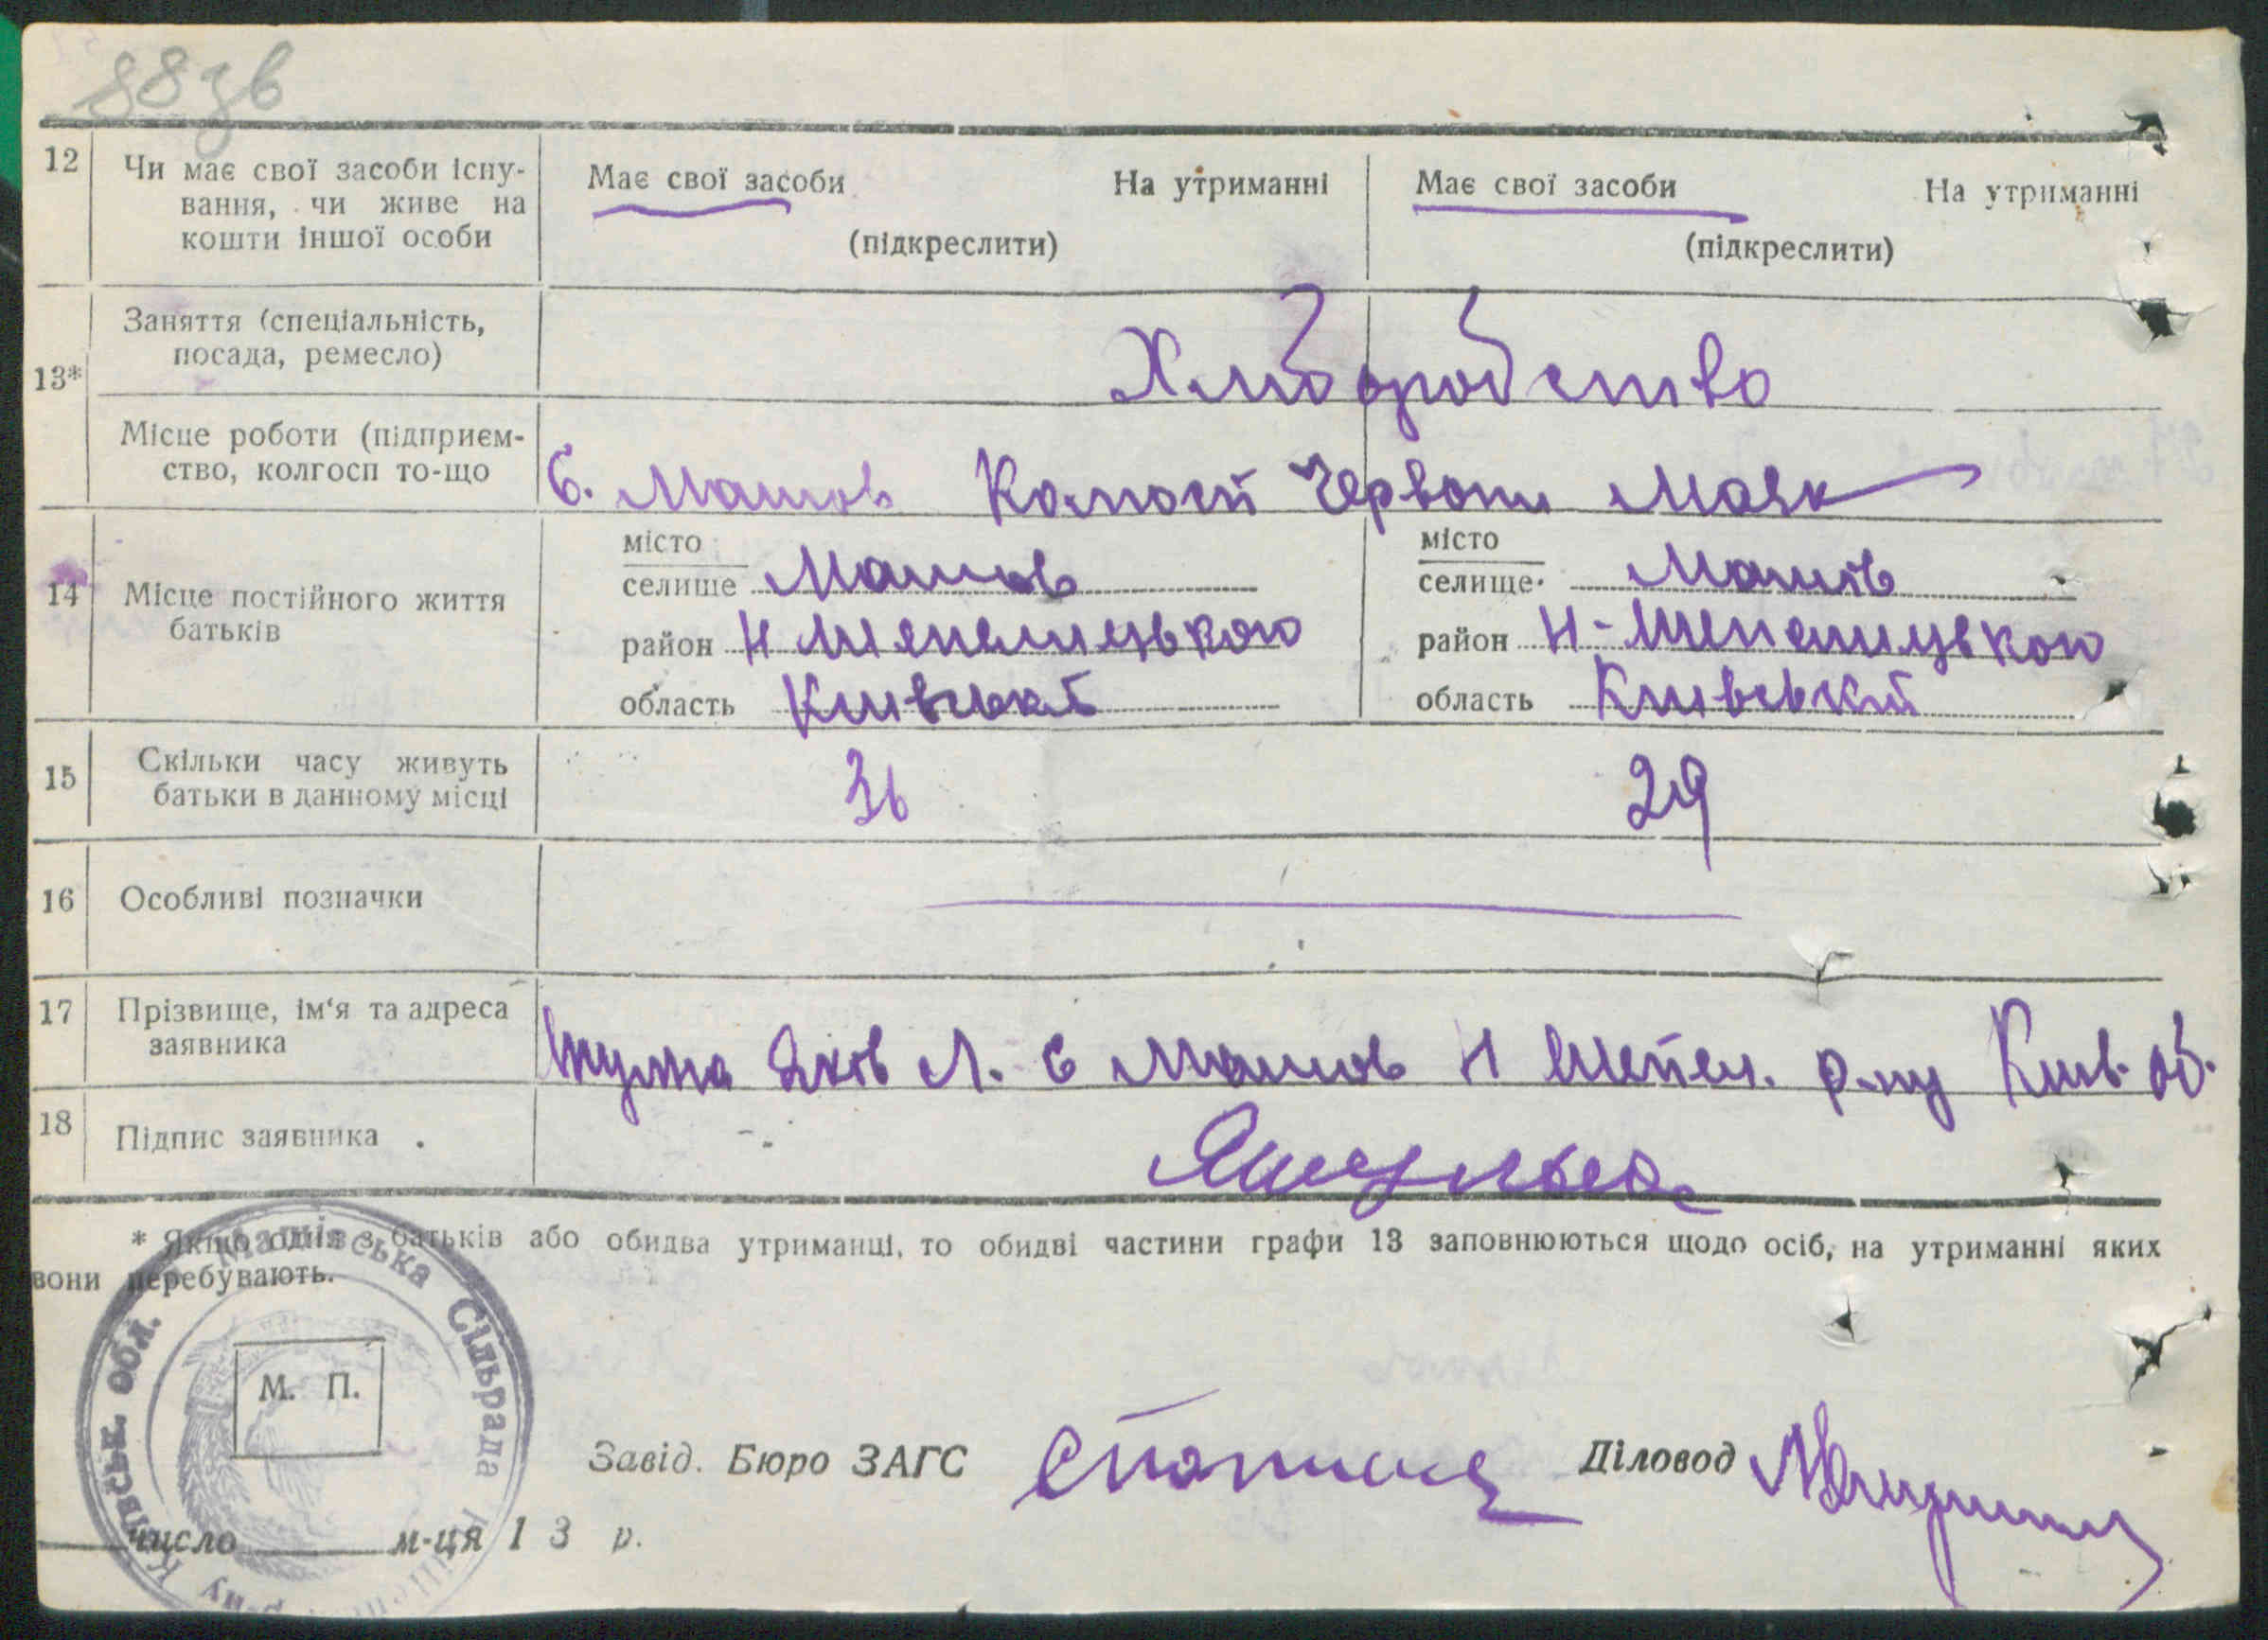 88 зв
12 Чи має свої засоби існу-
вання, чи живе на
кошти іншої особи
Має свої засоби На утриманні
(підкреслити)
Має свої засоби На утриманні
(підкреслити)
13*
Заняття (спеціальність,
посада, ремесло)
Хліборобство
Місце роботи (підприєм-
ство, колгосп то-що
С. Машов Колгосп Червони Маяк
14 Місце постійного життя
батьків
місто
селище Машов
район Н Шепелицького
область Київська
місто
селище Машов
район Н-Шепелицького
область Київський
15 Скільки часу живуть
батьки в данному місці
36 29
16 Особливі позначки
17 Прізвище, ім'я та адреса
заявника
Яков Л. с Машов Н Шепел. р-ну Київ. об.
18 Підпис заявника
* Якщо один з батьків або обидва утриманці, то обидві частини графи 13 заповнюються щодо осіб, на утриманні яких
вони перебувають.
Машівська Сільрада
Київськ. обл.
р-ну
М. П.
Завід. Бюро ЗАГС Діловод
число м-ця 1 3 р.